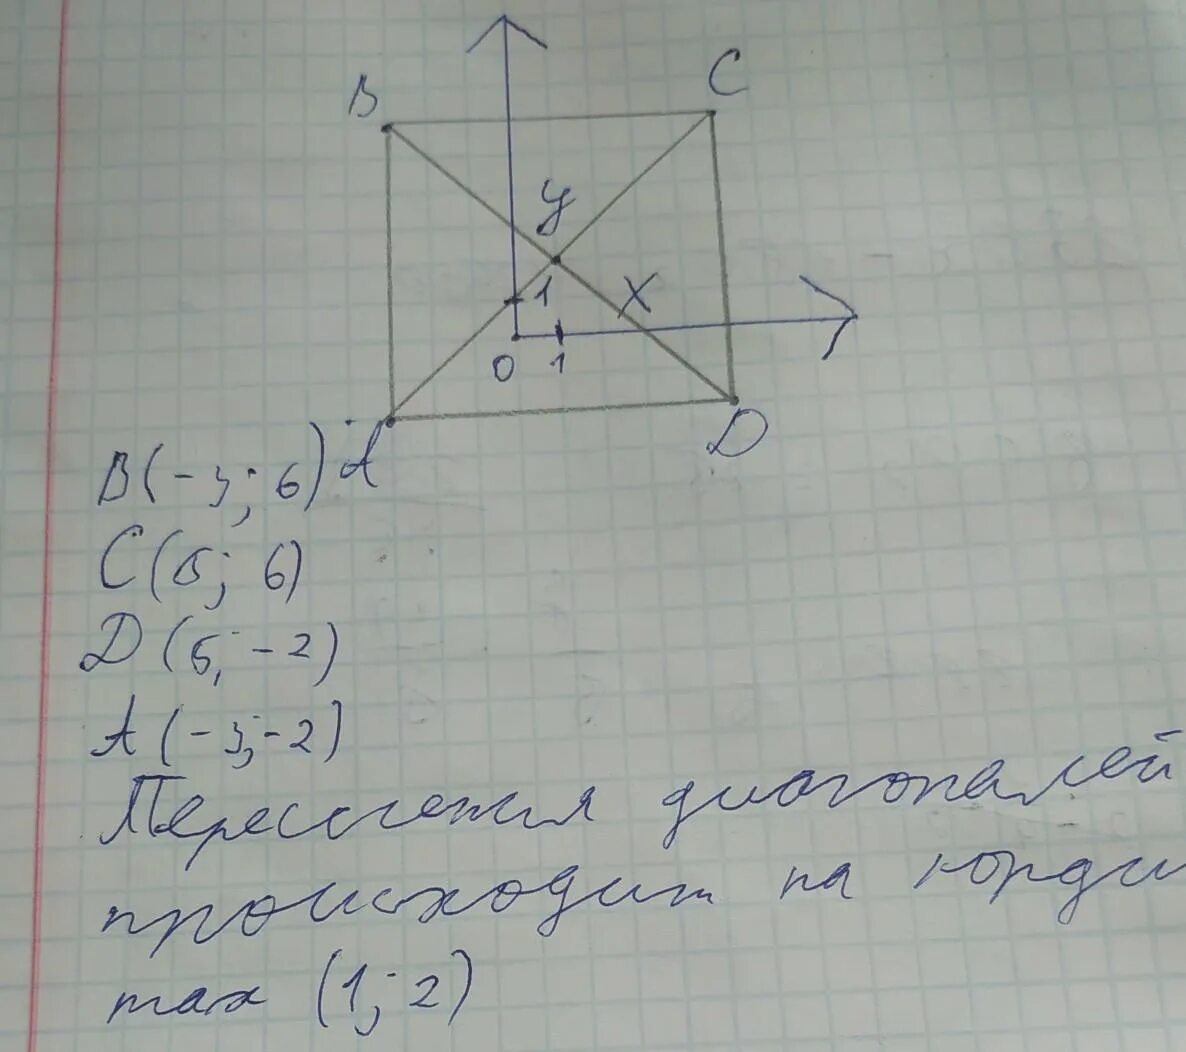 B
C
у
1
X
0
1
A
D
B(-3; 6)
C(5; 6)
D(5; -2)
A(-3; -2)
Пересечения диагоналей
происходит на корди
тах (1; 2)